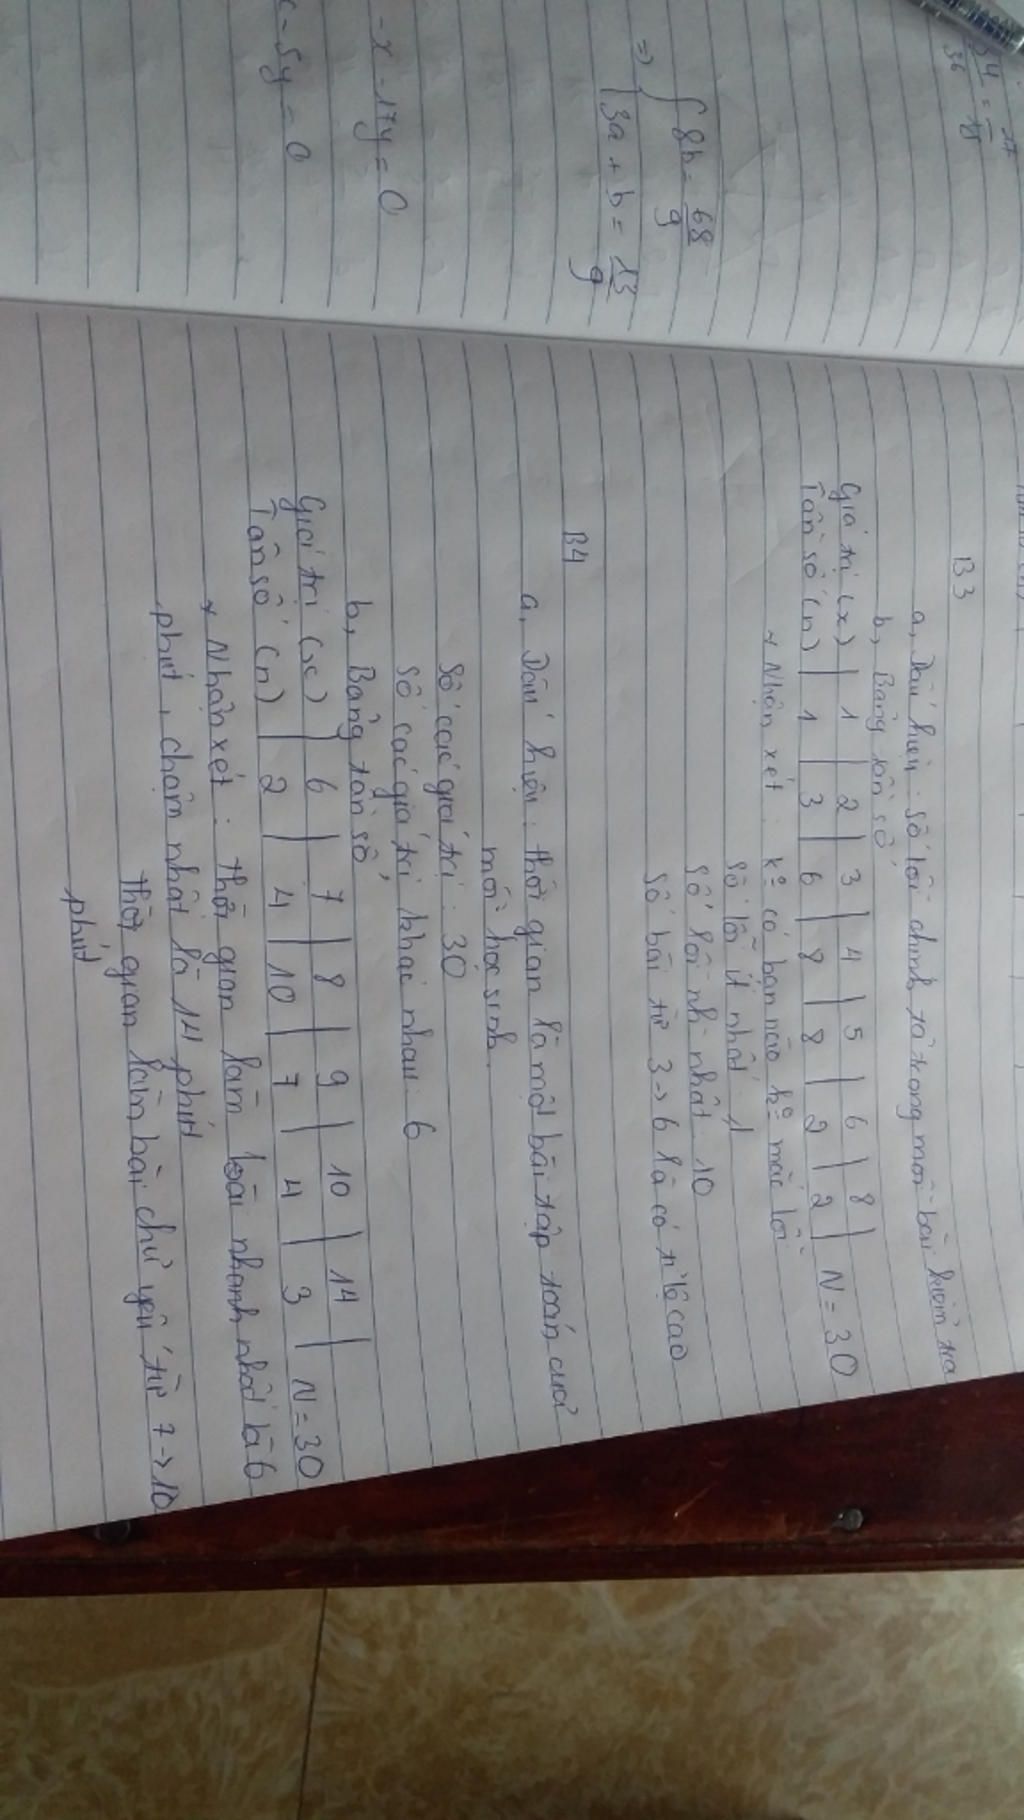 34/36 = 17/18
⇒ { 8b = 68/9
3a + b = 13/9
- x - 17y = 0
- 5y = 0
B3
a, Dấu hiệu : số lỗi chính tả trong mỗi bài kiểm tra
b, Bảng tần số
Giá trị (x) | 1 | 2 | 3 | 4 | 5 | 6 | 8 |
Tần số (n) | 1 | 3 | 6 | 8 | 8 | 2 | 2 | N = 30
* Nhận xét : kº có bạn nào kº mắc lỗi
Số lỗi ít nhất : 1
Số lỗi nh` nhất : 10
Số bài từ 3 → 6 là có tỉ lệ cao
B4
a, Dấu hiệu : thời gian là một bài tập toán của
mỗi học sinh.
Số các giá trị : 30
Số các giá trị khác nhau : 6
b, Bảng tần số
Giá trị (x) | 6 | 7 | 8 | 9 | 10 | 14 |
Tần số (n) | 2 | 4 | 10 | 7 | 4 | 3 | N = 30
* Nhận xét : thời gian làm bài nhanh nhất là 6
phút, chậm nhất là 14 phút
thời gian làm bài chủ yếu từ 7 → 10
phút